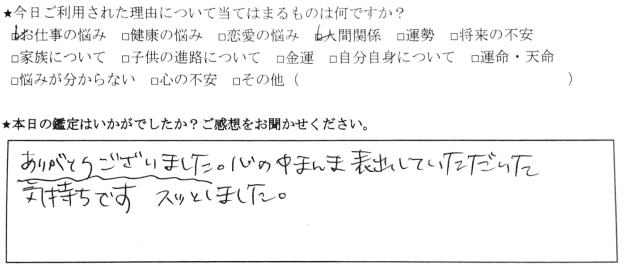 ★今日ご利用された理由について当てはまるものは何ですか？
☑お仕事の悩み □健康の悩み □恋愛の悩み ☑人間関係 □運勢 □将来の不安
□家族について □子供の進路について □金運 □自分自身について □運命・天命
□悩みが分からない □心の不安 □その他（ ）
★本日の鑑定はいかがでしたか？ご感想をお聞かせください。
ありがとうございました。心の中まんま表出していただいた
気持ちです スッとしました。